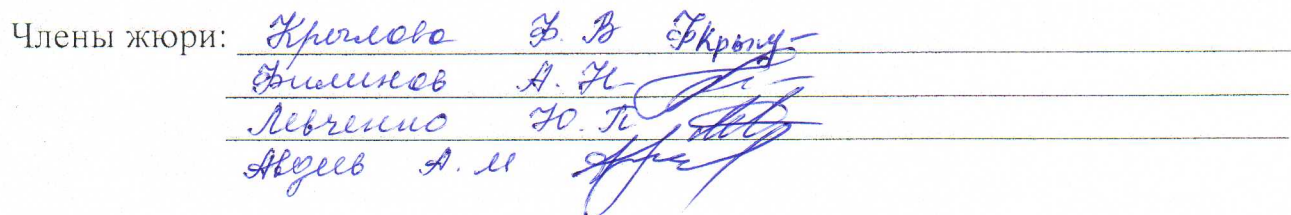 Члены жюри: Крылова Ф. В
Филинов А. Н
Левченко Ю. П
Авдиев А. М